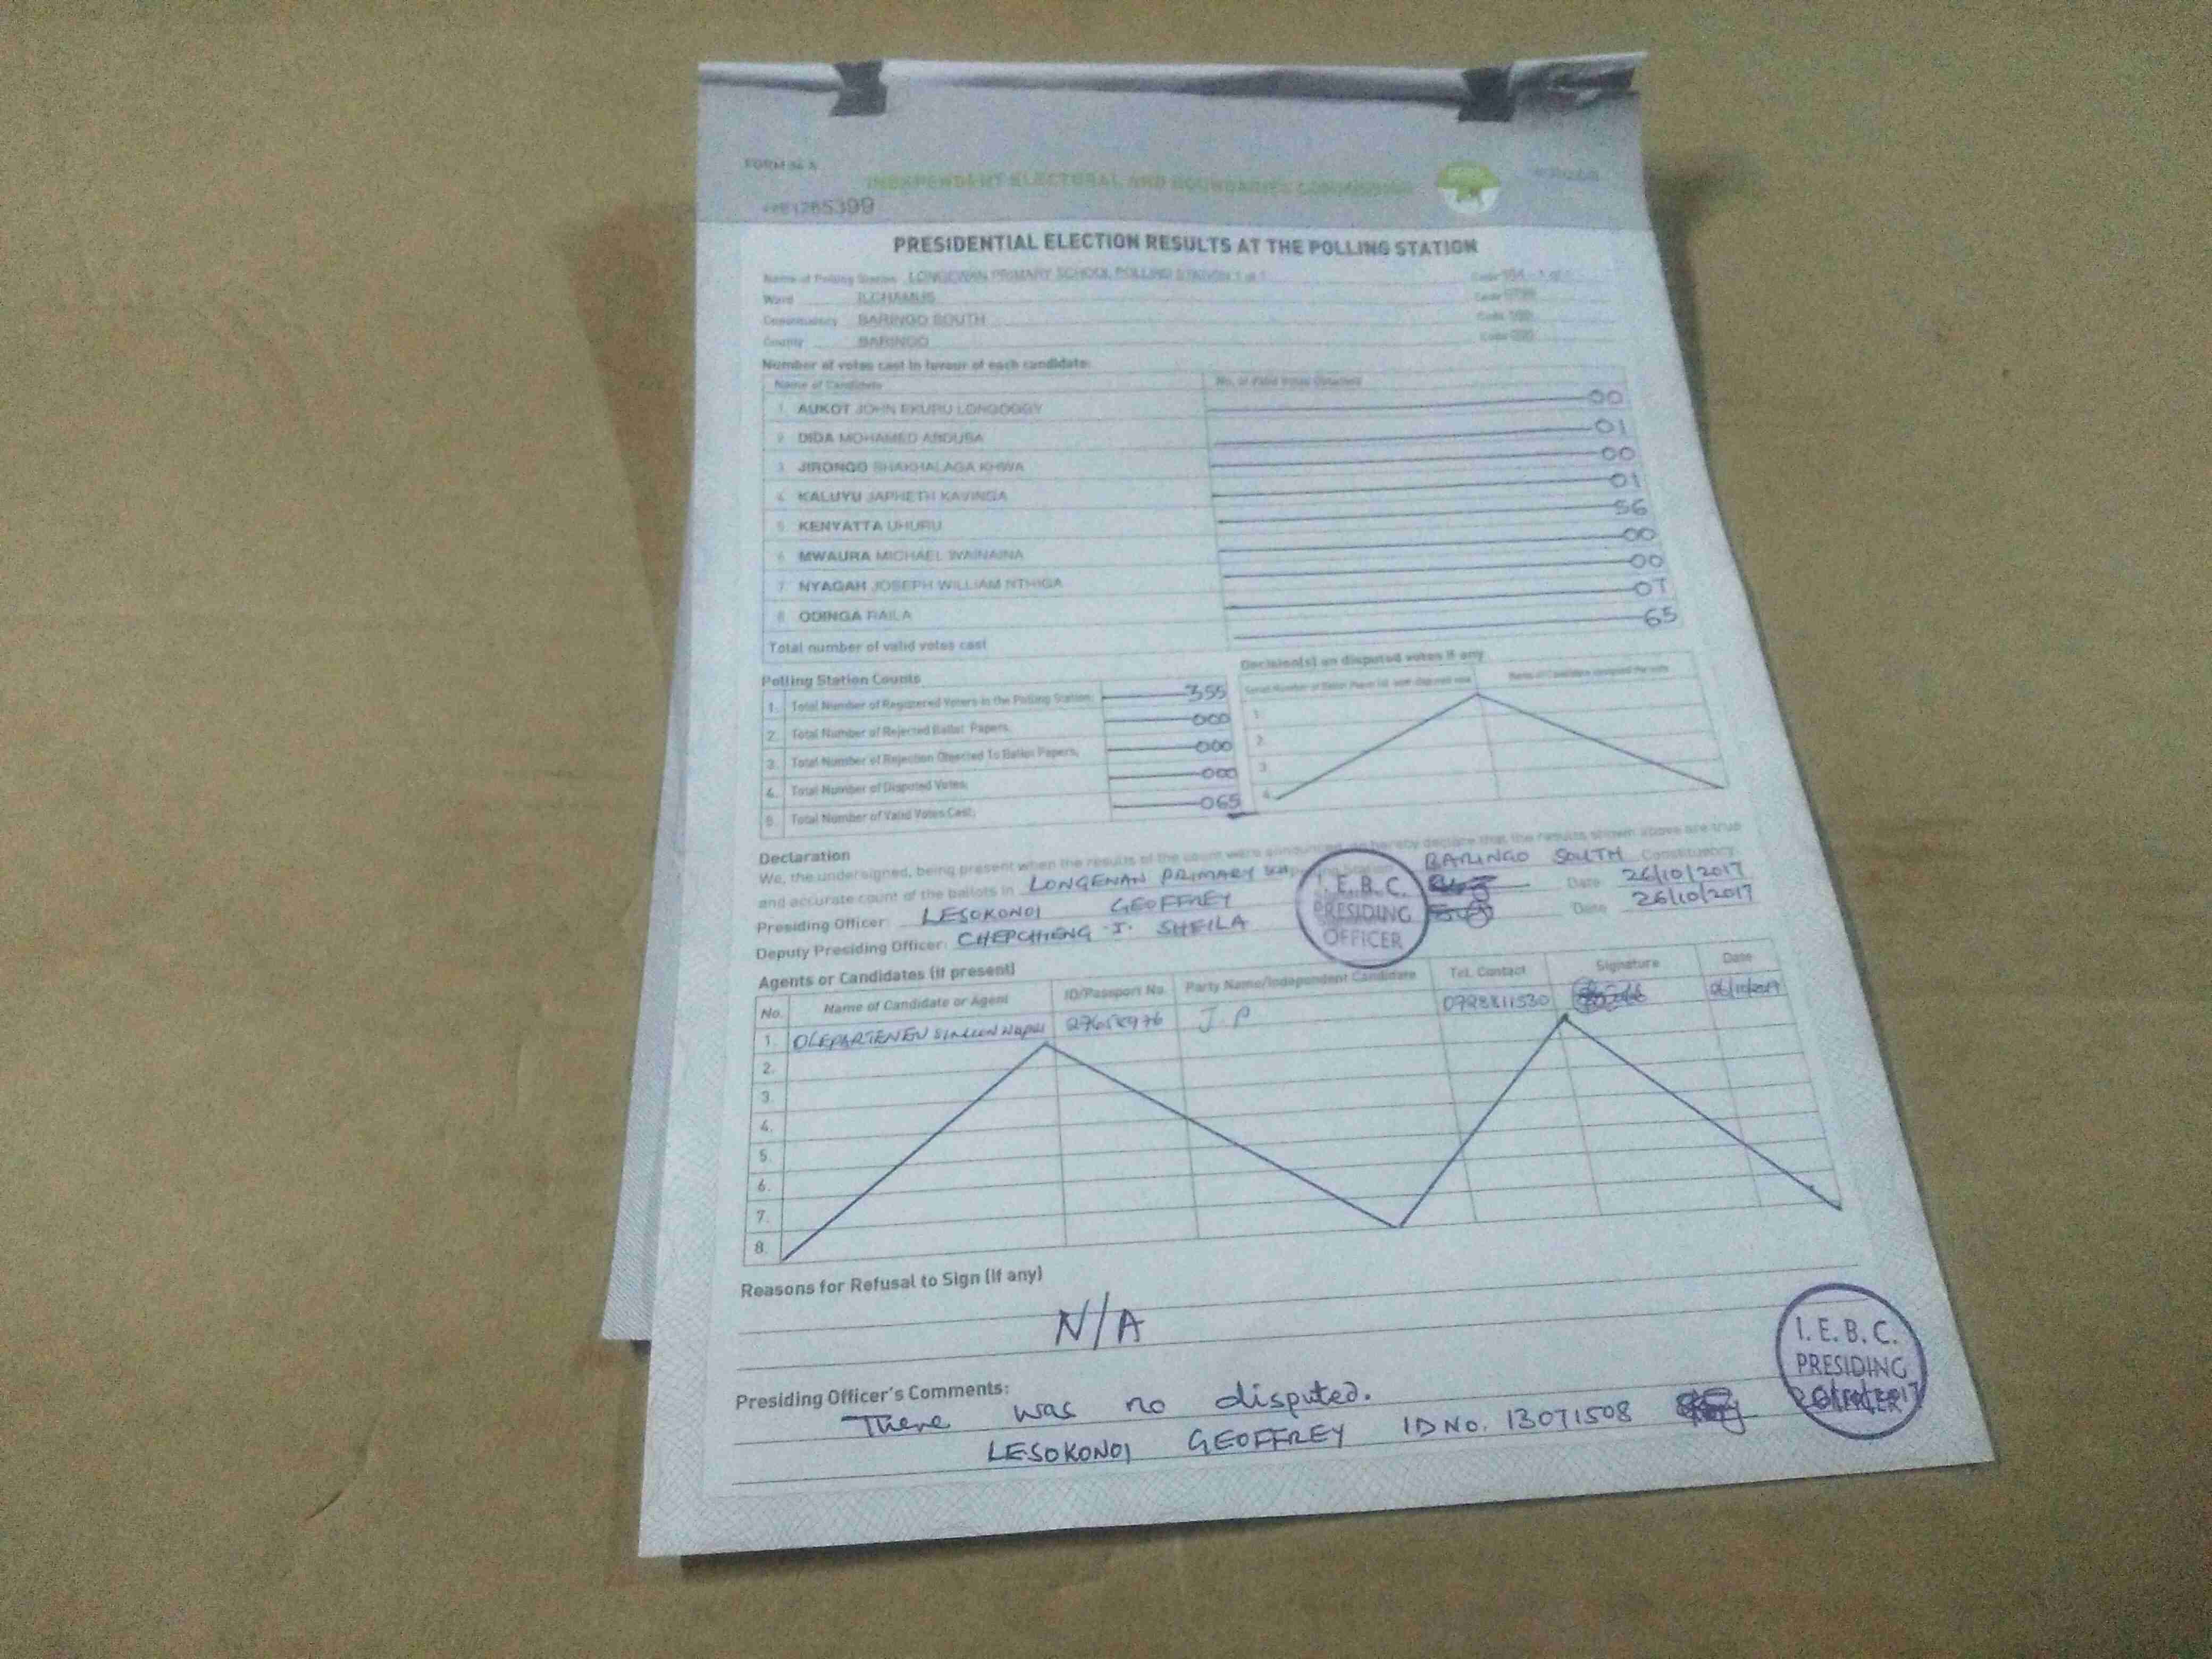 FORM 34 A
INDEPENDENT ELECTORAL AND BOUNDARIES COMMISSION
PRESIDENTIAL ELECTION RESULTS AT THE POLLING STATION
Name of Polling Station LONGEWAN PRIMARY SCHOOL POLLING STATION 1 of 1 Code
Ward ILCHAMUS Code
Constituency BARINGO SOUTH Code
County BARINGO Code
Number of votes cast in favour of each candidate:
Name of Candidate No. of Valid Votes Obtained
1. AUKOT JOHN EKURU LONGOGGY 00
2. DIDA MOHAMED ABDUBA 01
3. JIRONGO SHAKHALAGA KHWA 00
4. KALUYU JAPHETH KAVINGA 01
5. KENYATTA UHURU 56
6. MWAURA MICHAEL WAINAINA 00
7. NYAGAH JOSEPH WILLIAM NTHIGA 00
8. ODINGA RAILA 07
Total number of valid votes cast 65
Polling Station Counts
1. Total Number of Registered Voters in the Polling Station; 355
2. Total Number of Rejected Ballot Papers; 000
3. Total Number of Rejection Objected To Ballot Papers; 000
4. Total Number of Disputed Votes; 000
5. Total Number of Valid Votes Cast; 065
Decision(s) on disputed votes if any
1.
2.
3.
4.
Declaration
We, the undersigned, being present when the results of the count were announced, hereby declare that the results shown above are true
and accurate count of the ballots in LONGENAN PRIMARY BARINGO SOUTH Constituency.
Presiding Officer: LESOKONOI GEOFFREY Date 26/10/2017
Deputy Presiding Officer: CHEPCHIENG J. SHEILA Date 26/10/2017
I.E.B.C.
PRESIDING
OFFICER
Agents or Candidates (if present)
No. Name of Candidate or Agent ID/Passport No. Party Name/Independent Candidate Tel. Contact Signature Date
1. J.P 0728811530
2.
3.
4.
5.
6.
7.
8.
Reasons for Refusal to Sign (If any)
N/A
Presiding Officer's Comments:
There was no disputed.
LESOKONOI GEOFFREY ID NO. 13071508
I.E.B.C.
PRESIDING